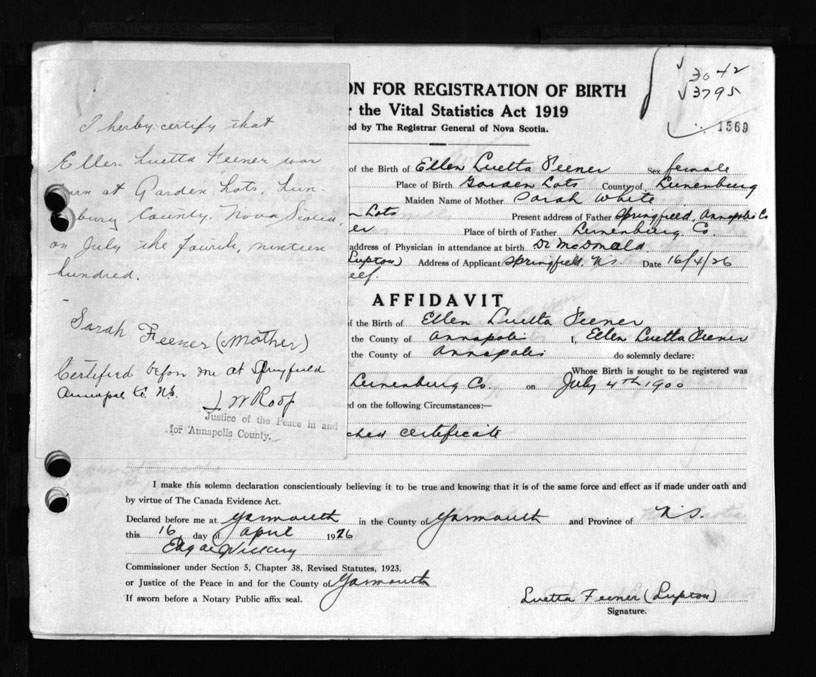 I herby certify that
Ellen Luetta Feener was
at Garden Lots, Lun-
bury County. Nova Scotia,
on July the fourth, nineteen
hundred.
Sarah Feener (Mother)
Certified before me at Springfield
Annapol Co. N.S.
J W Roop
Justice of the Peace in and
for Annapolis County.
3042
3795
1569
ON FOR REGISTRATION OF BIRTH
the Vital Statistics Act 1919
ed by The Registrar General of Nova Scotia.
of the Birth of Ellen Luetta Feener Sex female
Place of Birth Garden Lots County of Lunenburg
Maiden Name of Mother Sarah White
n Lots Present address of Father Springfield, Annapolis Co
er Place of birth of Father Lunenburg Co.
address of Physician in attendance at birth Dr McDonald
Lupton) Address of Applicant Springfield, N.S. Date 16/4/26
eef.
AFFIDAVIT
of the Birth of Ellen Luetta Feener
the County of Annapolis I, Ellen Luetta Feener
the County of Annapolis do solemnly declare:
Whose Birth is sought to be registered was
Lunenburg Co. on July 4th 1900
d on the following Circumstances:—
ched certificate
I make this solemn declaration conscientiously believing it to be true and knowing that it is of the same force and effect as if made under oath and
by virtue of The Canada Evidence Act.
Declared before me at Yarmouth in the County of Yarmouth and Province of N.S.
this 16 day of April 1926
Edgar Vickery
Commissioner under Section 5, Chapter 38, Revised Statutes, 1923.
or Justice of the Peace in and for the County of Yarmouth
If sworn before a Notary Public affix seal.
Luetta Feener (Lupton)
Signature.